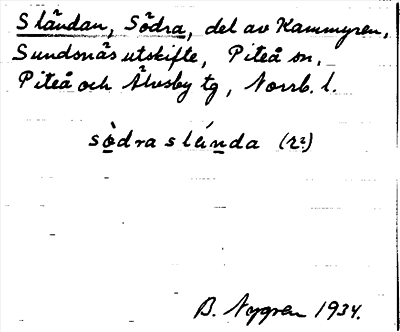 Sländan, Södra, del av Kammyren,
Sundsnäs utskifte, Piteå sn,
Piteå och Älvsby tg, Norrb. l.
sò̲dra slán̲da (r²)
B. Nygren 1934.